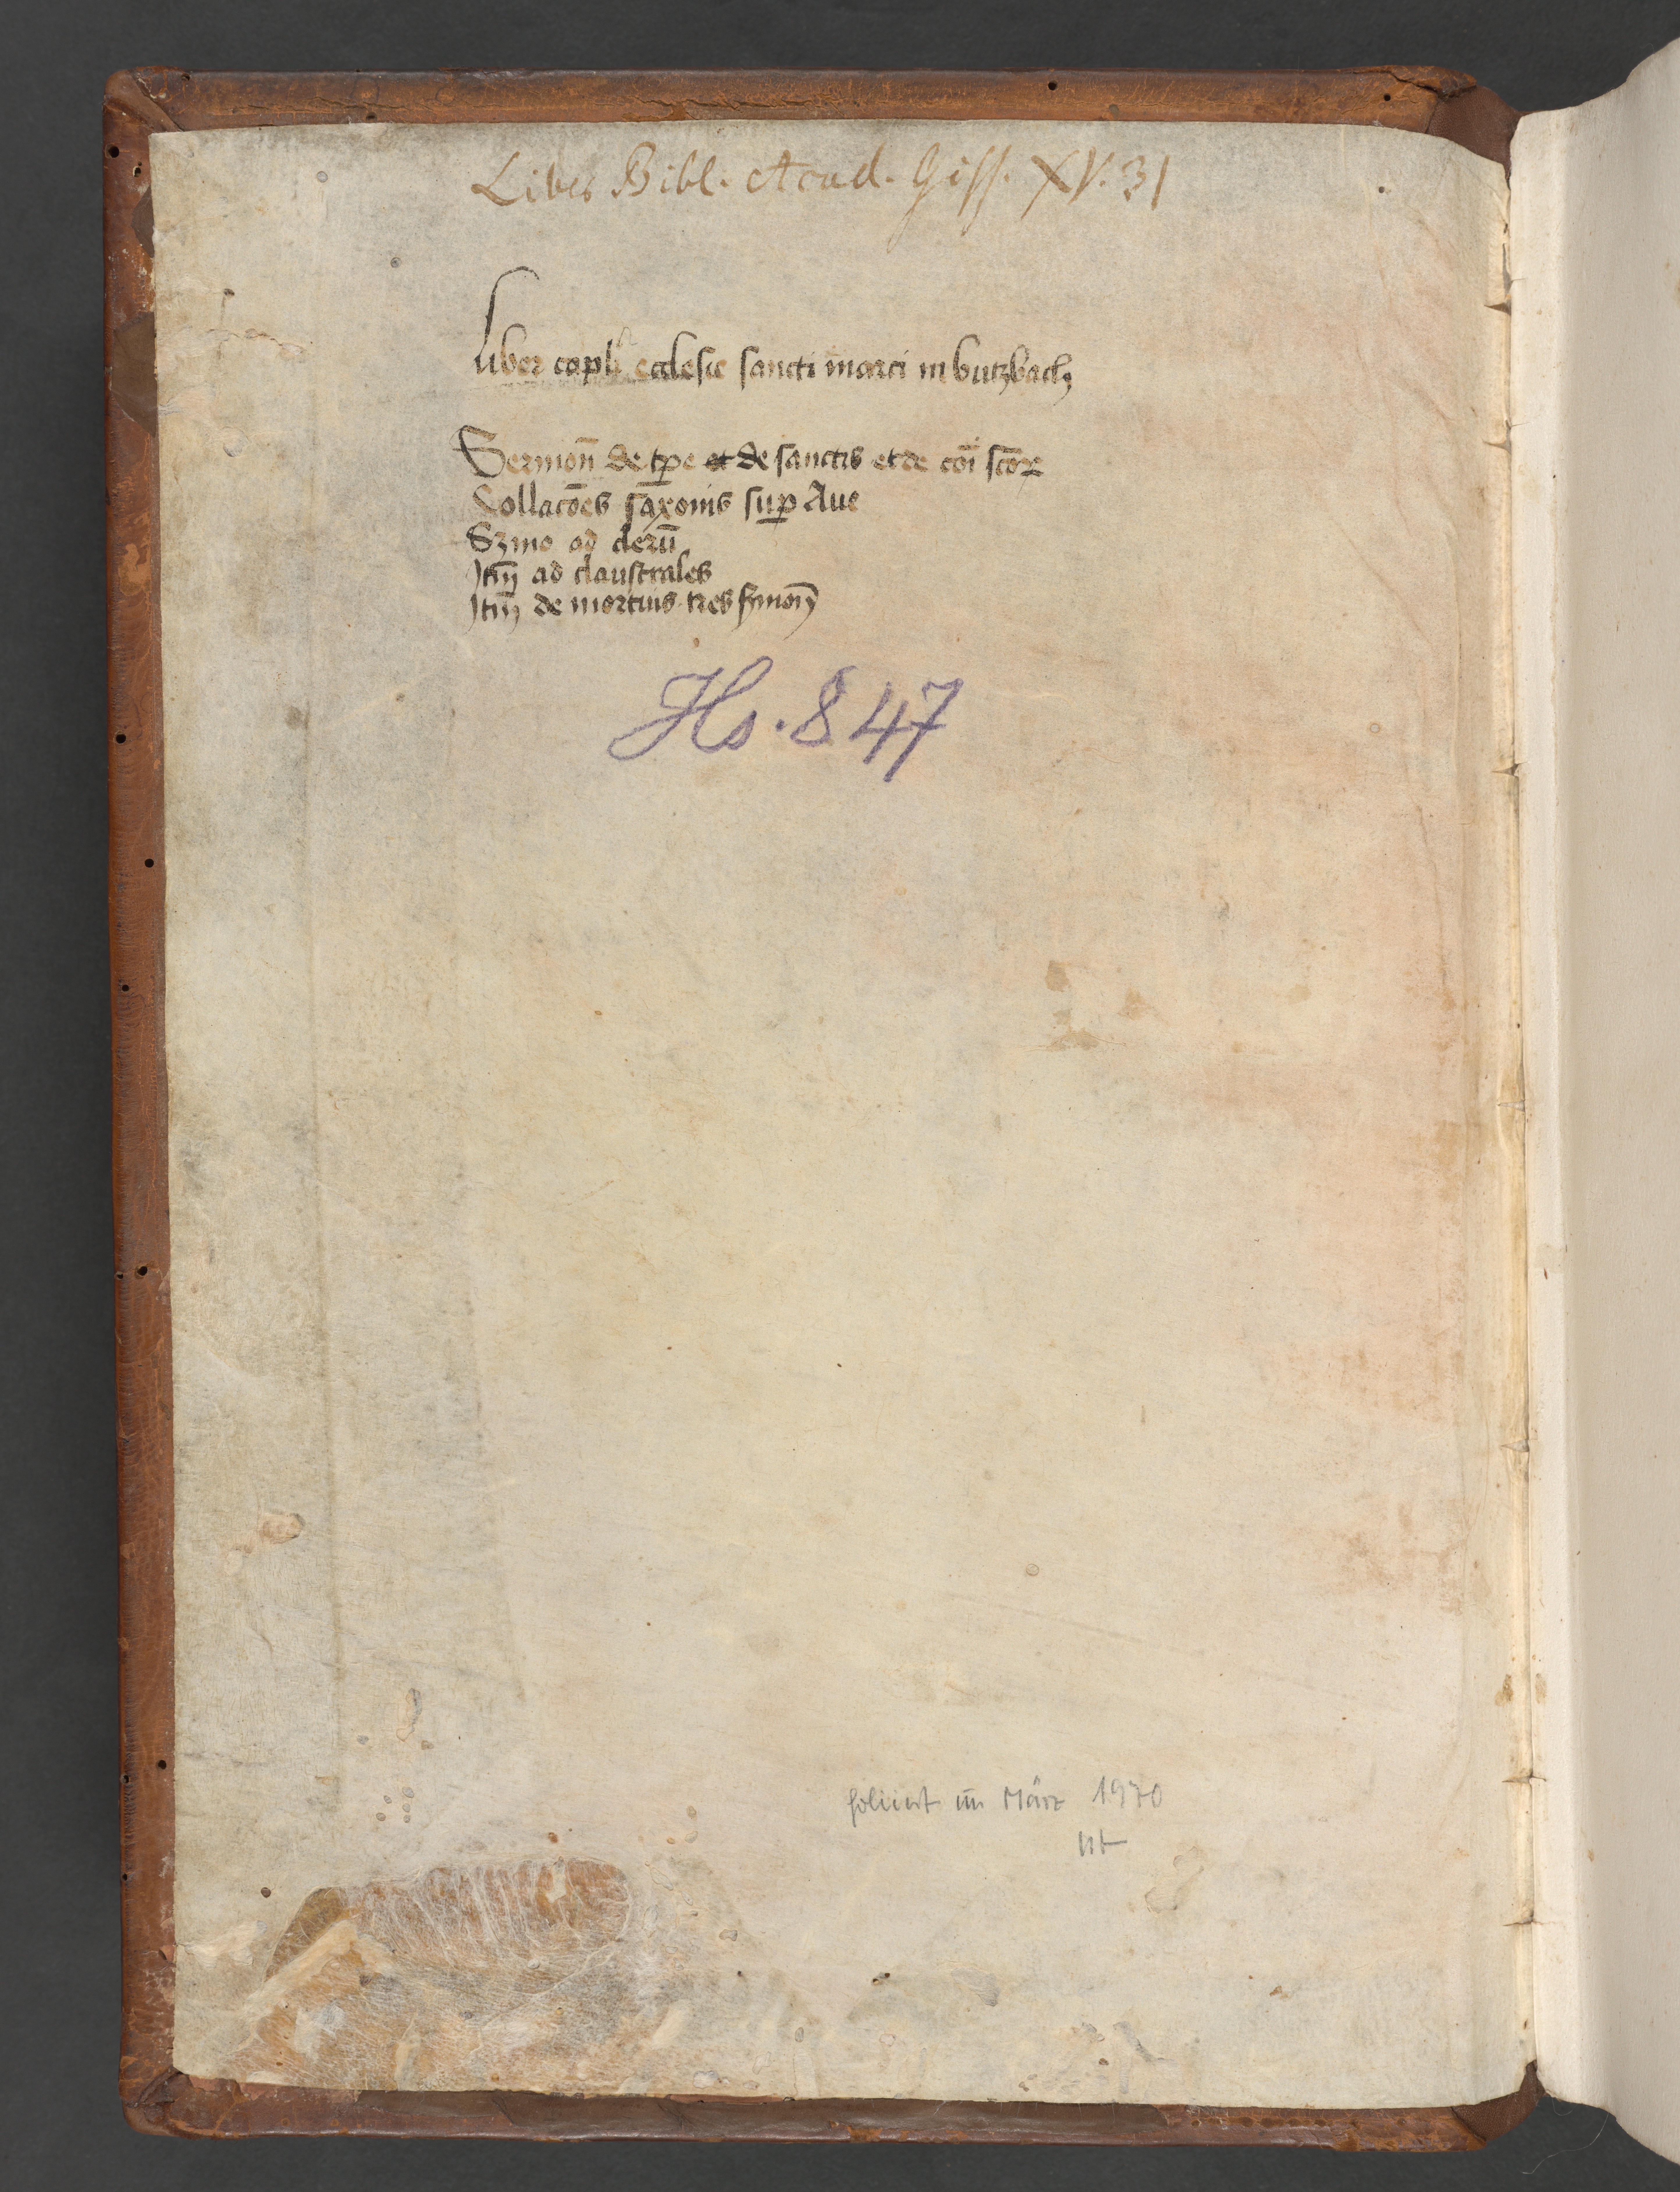 Liber Bibl. Acad. Giss. XV. 31
Liber capli ecclesie sancti marci in butzbach
Sermon̄ de tp̄e et de sanctis et de cōi scōꝝ
Collacōes saxonis suꝑ Aue
Sʒmo ad clerū
Itm̄ ad claustrales
Itm̄ de mortuis tres ẜmon̄
Hs. 847
foliiert im März 1970